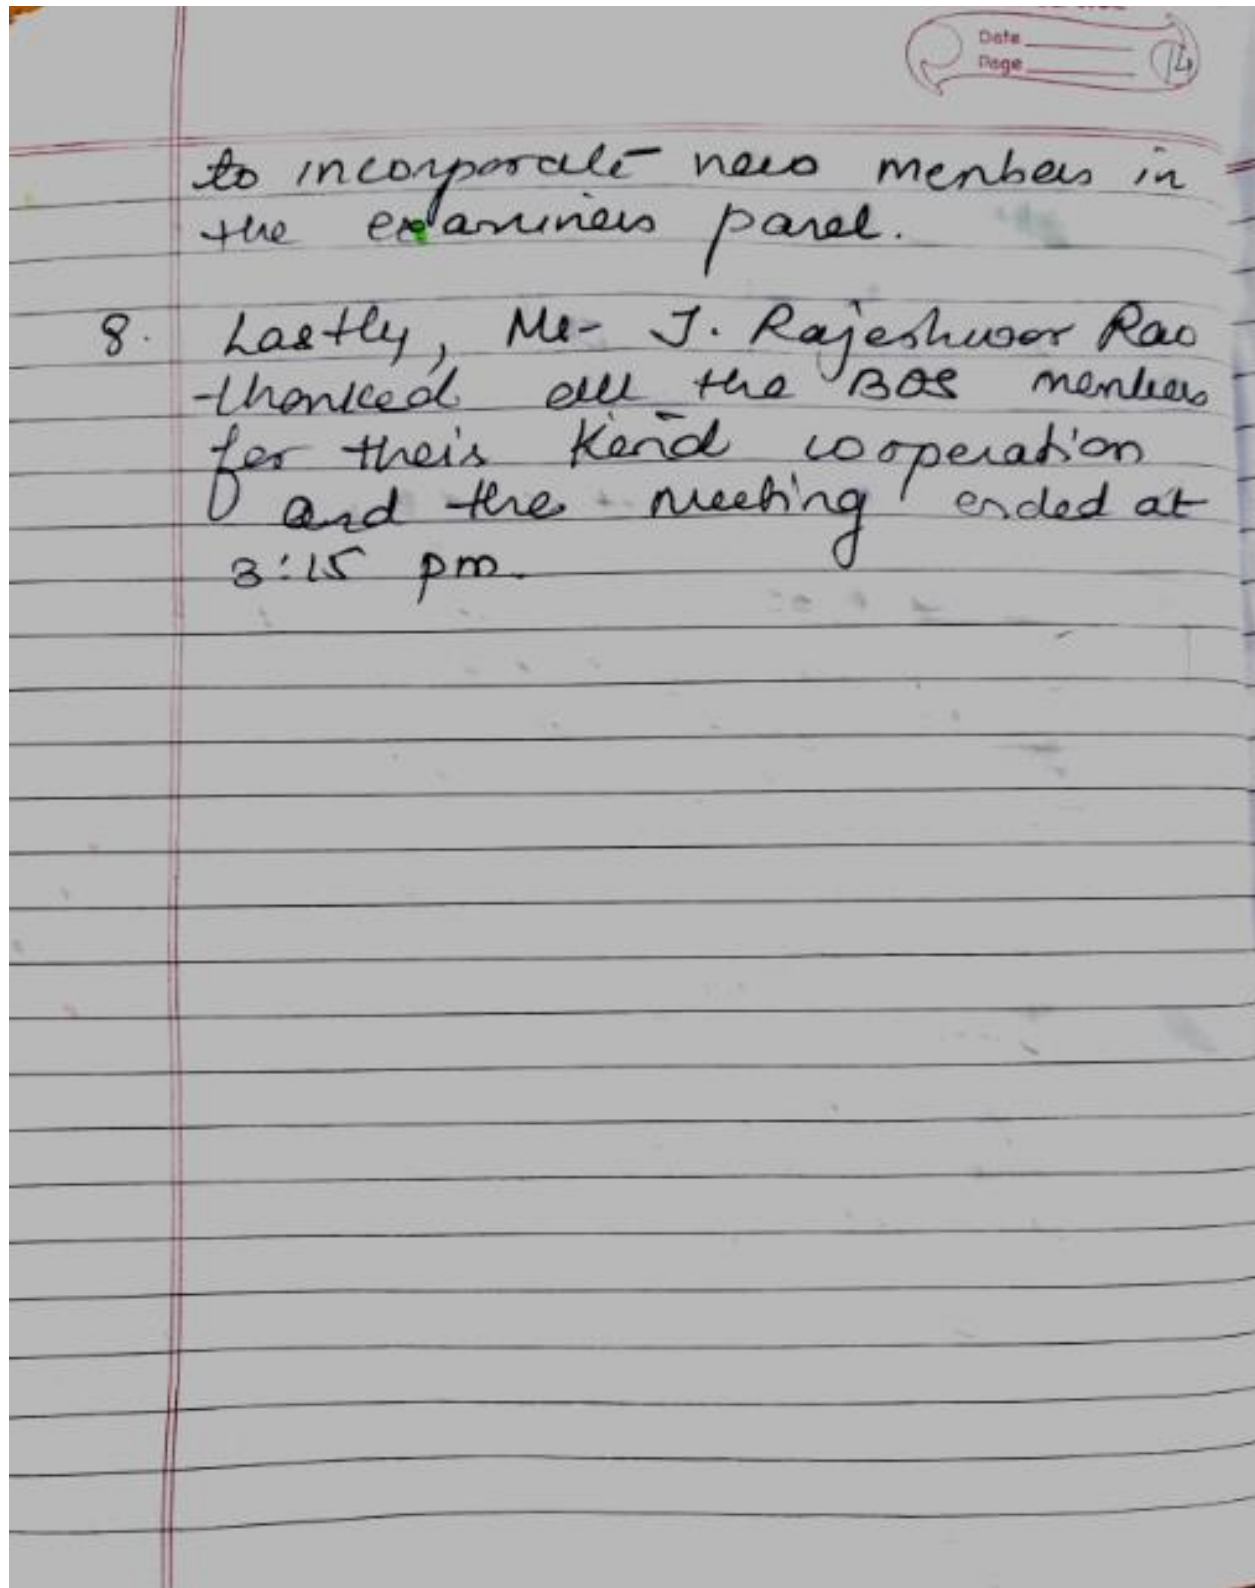 Date
Page 14
to incorporate new members in
the examiners panel.
8. Lastly, Mr. J. Rajeshwar Rao
thanked all the BOS members
for their kind cooperation
and the meeting ended at
3:15 pm.